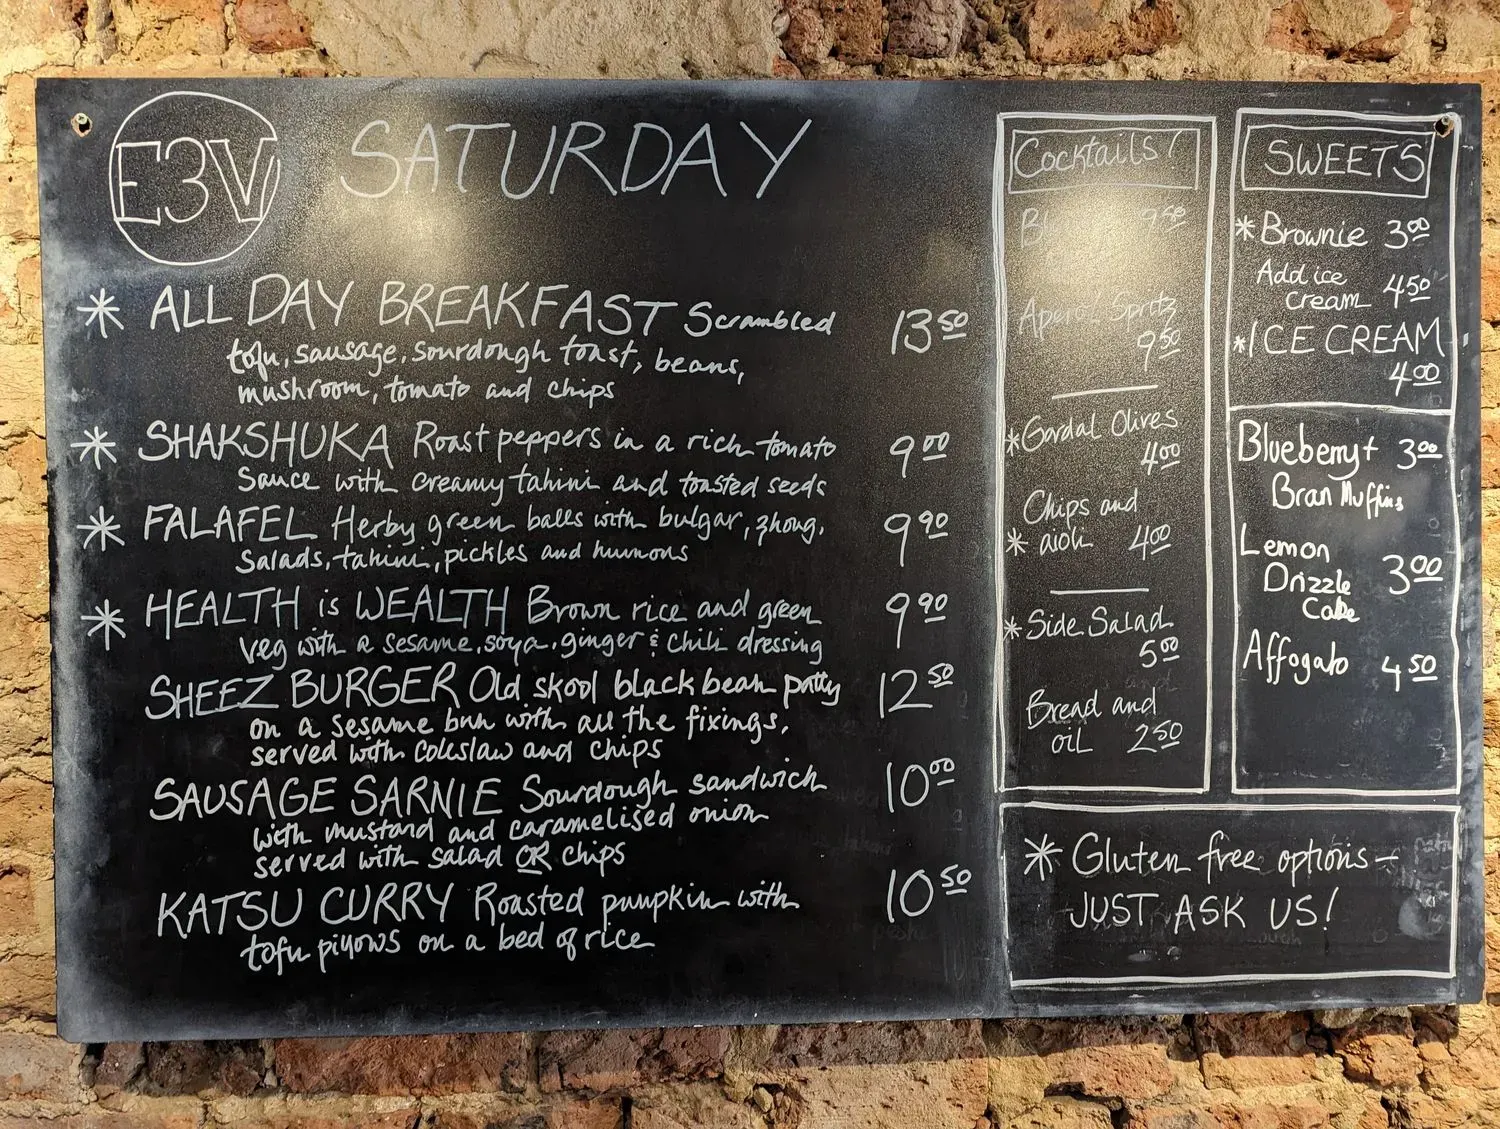 E3V
SATURDAY
* ALL DAY BREAKFAST Scrambled 13.50
tofu, sausage, sourdough toast, beans,
mushroom, tomato and chips
* SHAKSHUKA Roast peppers in a rich tomato 9.00
sauce with creamy tahini and toasted seeds
* FALAFEL Herby green balls with bulgar, zhoug, 9.90
salads, tahini, pickles and humous
* HEALTH is WEALTH Brown rice and green 9.90
veg with a sesame, soya, ginger & chili dressing
SHEEZ BURGER Old skool black bean patty 12.50
on a sesame bun with all the fixings,
served with coleslaw and chips
SAUSAGE SARNIE Sourdough sandwich 10.00
with mustard and caramelised onion
served with salad OR chips
KATSU CURRY Roasted pumpkin with 10.50
tofu pillows on a bed of rice
Cocktails!
9.50
Aperol Spritz
9.50
* Gordal Olives
4.00
Chips and
* aioli 4.00
* Side Salad
5.00
Bread and
oil 2.50
SWEETS
* Brownie 3.00
Add ice
cream 4.50
* ICE CREAM
4.00
Blueberry + 3.00
Bran Muffins
Lemon
Drizzle 3.00
Cake
Affogato 4.50
* Gluten free options –
JUST ASK US!